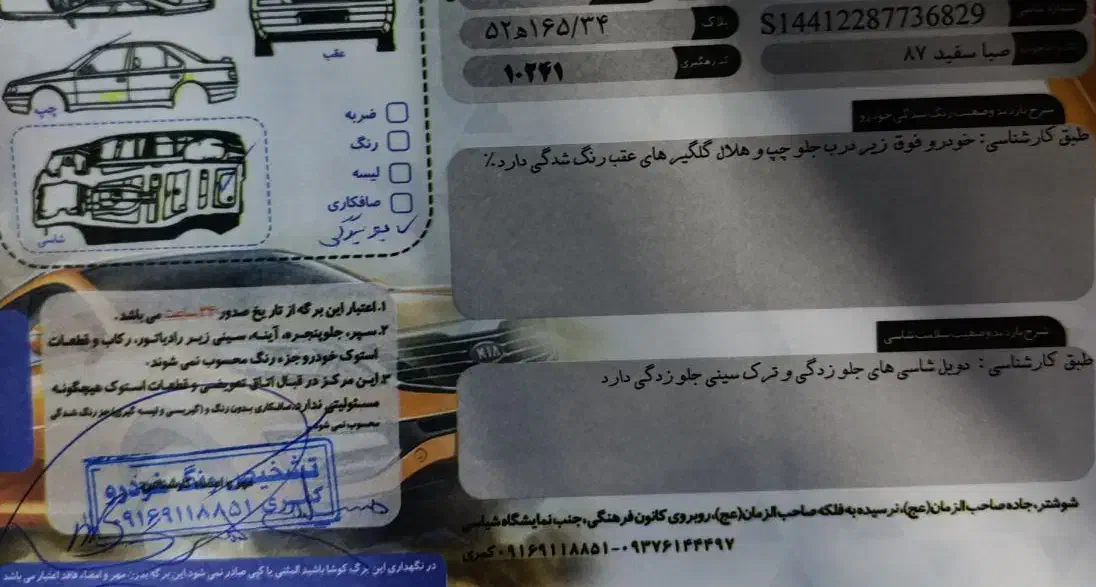 شماره شاسی
S14412287736829
پلاک
۵۲ه۱۶۵/۳۴
صبا سفید ۸۷
کد رهگیری
۱۰۲۴۱
عقب
چپ
شاسی
ضربه
رنگ
لیسه
صافکاری
شرح بازدید وضعیت رنگ شدگی خودرو
طبق کارشناسی: خودرو فوق زیر درب جلو چپ و هلال گلگیر های عقب رنگ شدگی دارد.٪
شرح بازدید وضعیت سلامت شاسی
طبق کارشناسی: دوبل شاسی های جلو زدگی و ترک سینی جلو زدگی دارد
۱. اعتبار این برگه از تاریخ صدور ۲۴ ساعت می باشد.
۲. سپر، جلوپنجره، آینه، سینی زیر رادیاتور، رکاب و قطعات
استوک خودرو جزء رنگ محسوب نمی شوند.
۳. این مرکز در قبال اتاق تعویضی و قطعات استوک هیچگونه
مسئولیتی ندارد. صافکاری بدون رنگ و (گیریسی و لیسه گیری) جز رنگ شدگی
محسوب نمی شود.
تشخیص رنگ خودرو
کمری ۰۹۱۶۹۱۱۸۸۵۱
شوشتر، جاده صاحب الزمان(عج)، نرسیده به فلکه صاحب الزمان(عج)، روبروی کانون فرهنگی، جنب نمایشگاه شیاسی
۰۹۱۶۹۱۱۸۸۵۱-۰۹۳۷۶۱۴۴۴۹۷ کمری
در نگهداری این برگ کوشا باشید المثنی یا کپی صادر نمی شود این برگه بدون مهر و امضاء فاقد اعتبار می باشد
KIA